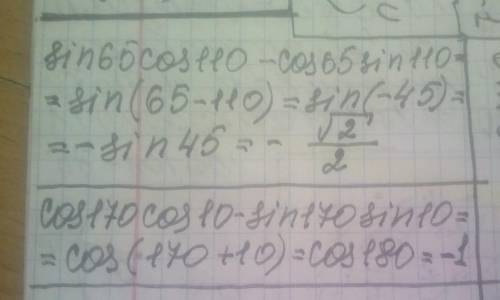 sin65cos110-cos65sin110=
=sin(65-110)=sin(-45)=
=-sin45=-√2/2
cos170cos10-sin170sin10=
=cos(170+10)=cos180=-1